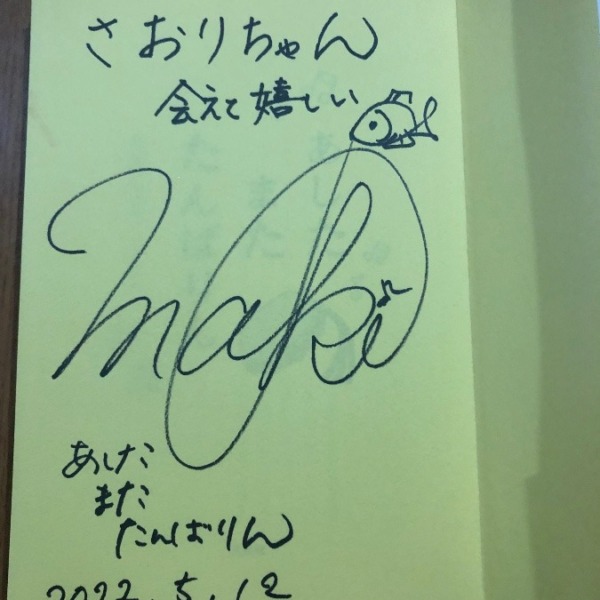 さおりちゃん
会えて嬉しい
maki
あした
また
たんばりん
2022.5.12